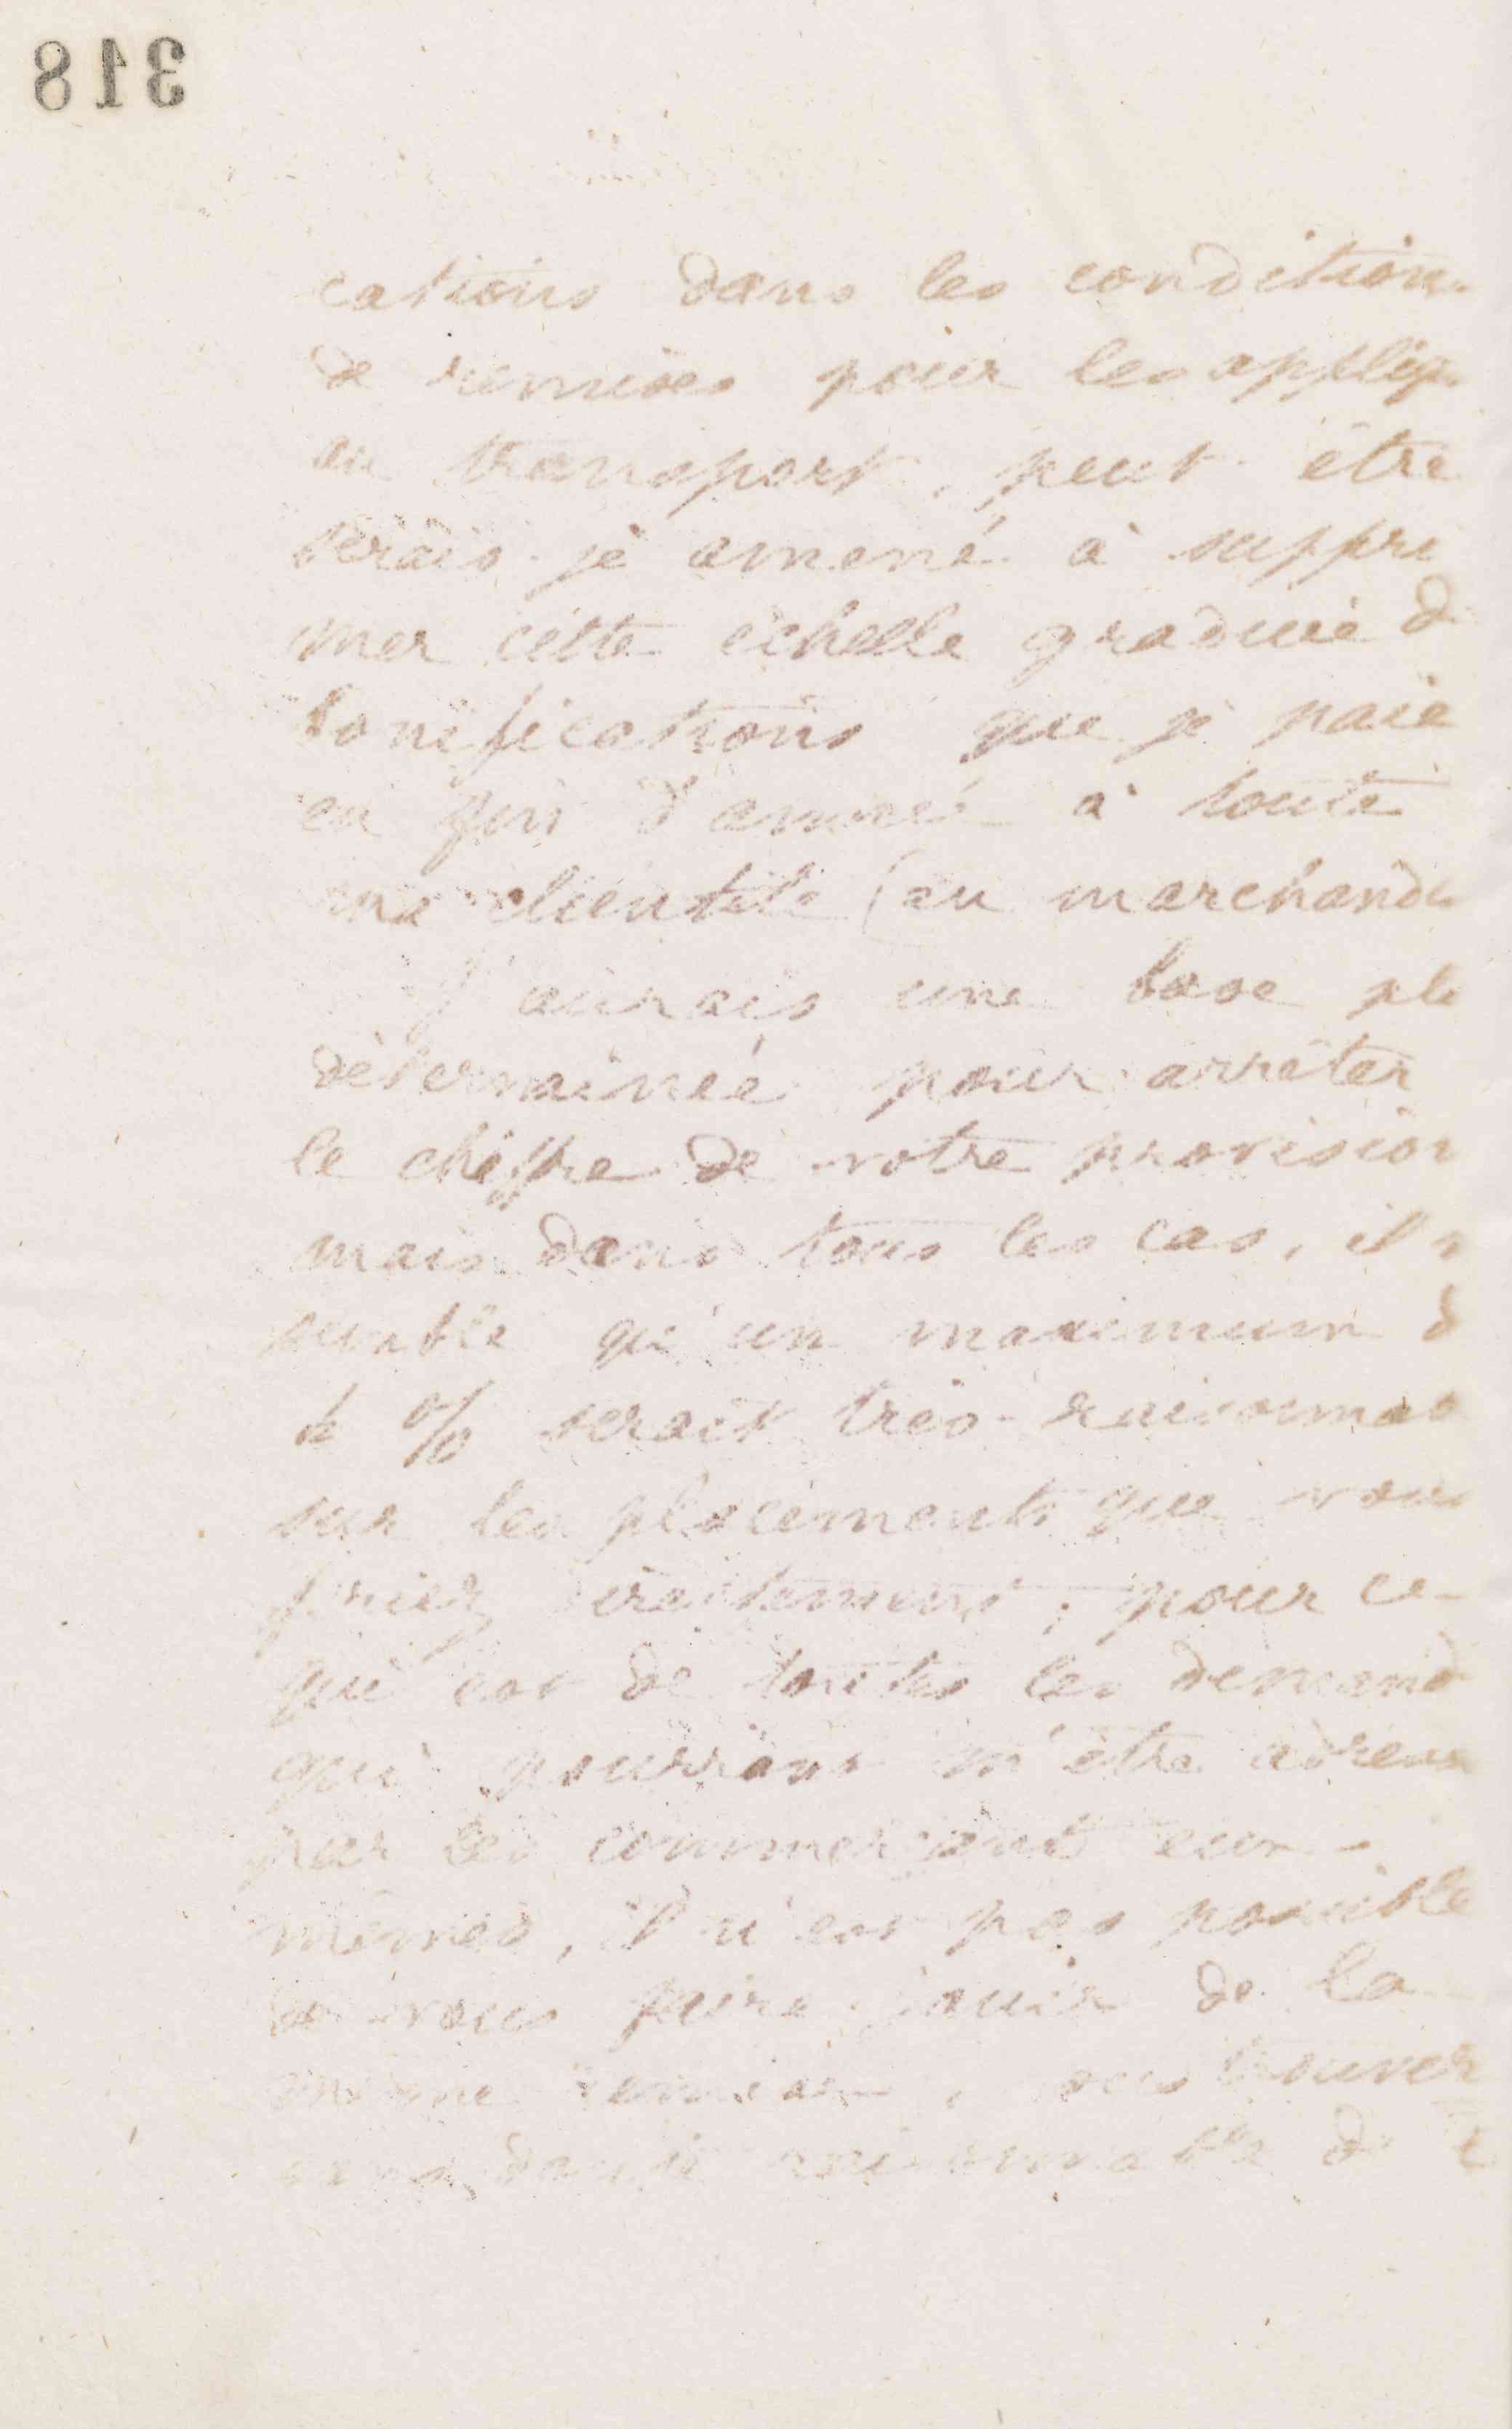 318
cations dans les condition
de remises pour les appliq
au transport, peut être
serais-je amené à suppri
mer cette échelle graduée d
bonifications que je paie
en fin d'année à toute
ma clientèle (en marchandi
J'aurais une base pl
déterminée pour arrêter
le chiffre de votre provision
mais dans tous les cas, il
semble qu'un maximum d
% serait très-raisonnab
sur les placements que vous
feriez directement ; pour ce
qui est de toutes les demand
qui pourront m'être adress
par les commerçants eux-
mêmes, il n'est pas possible
de vous faire jouir de la
même remise, trouver
raisonnable de